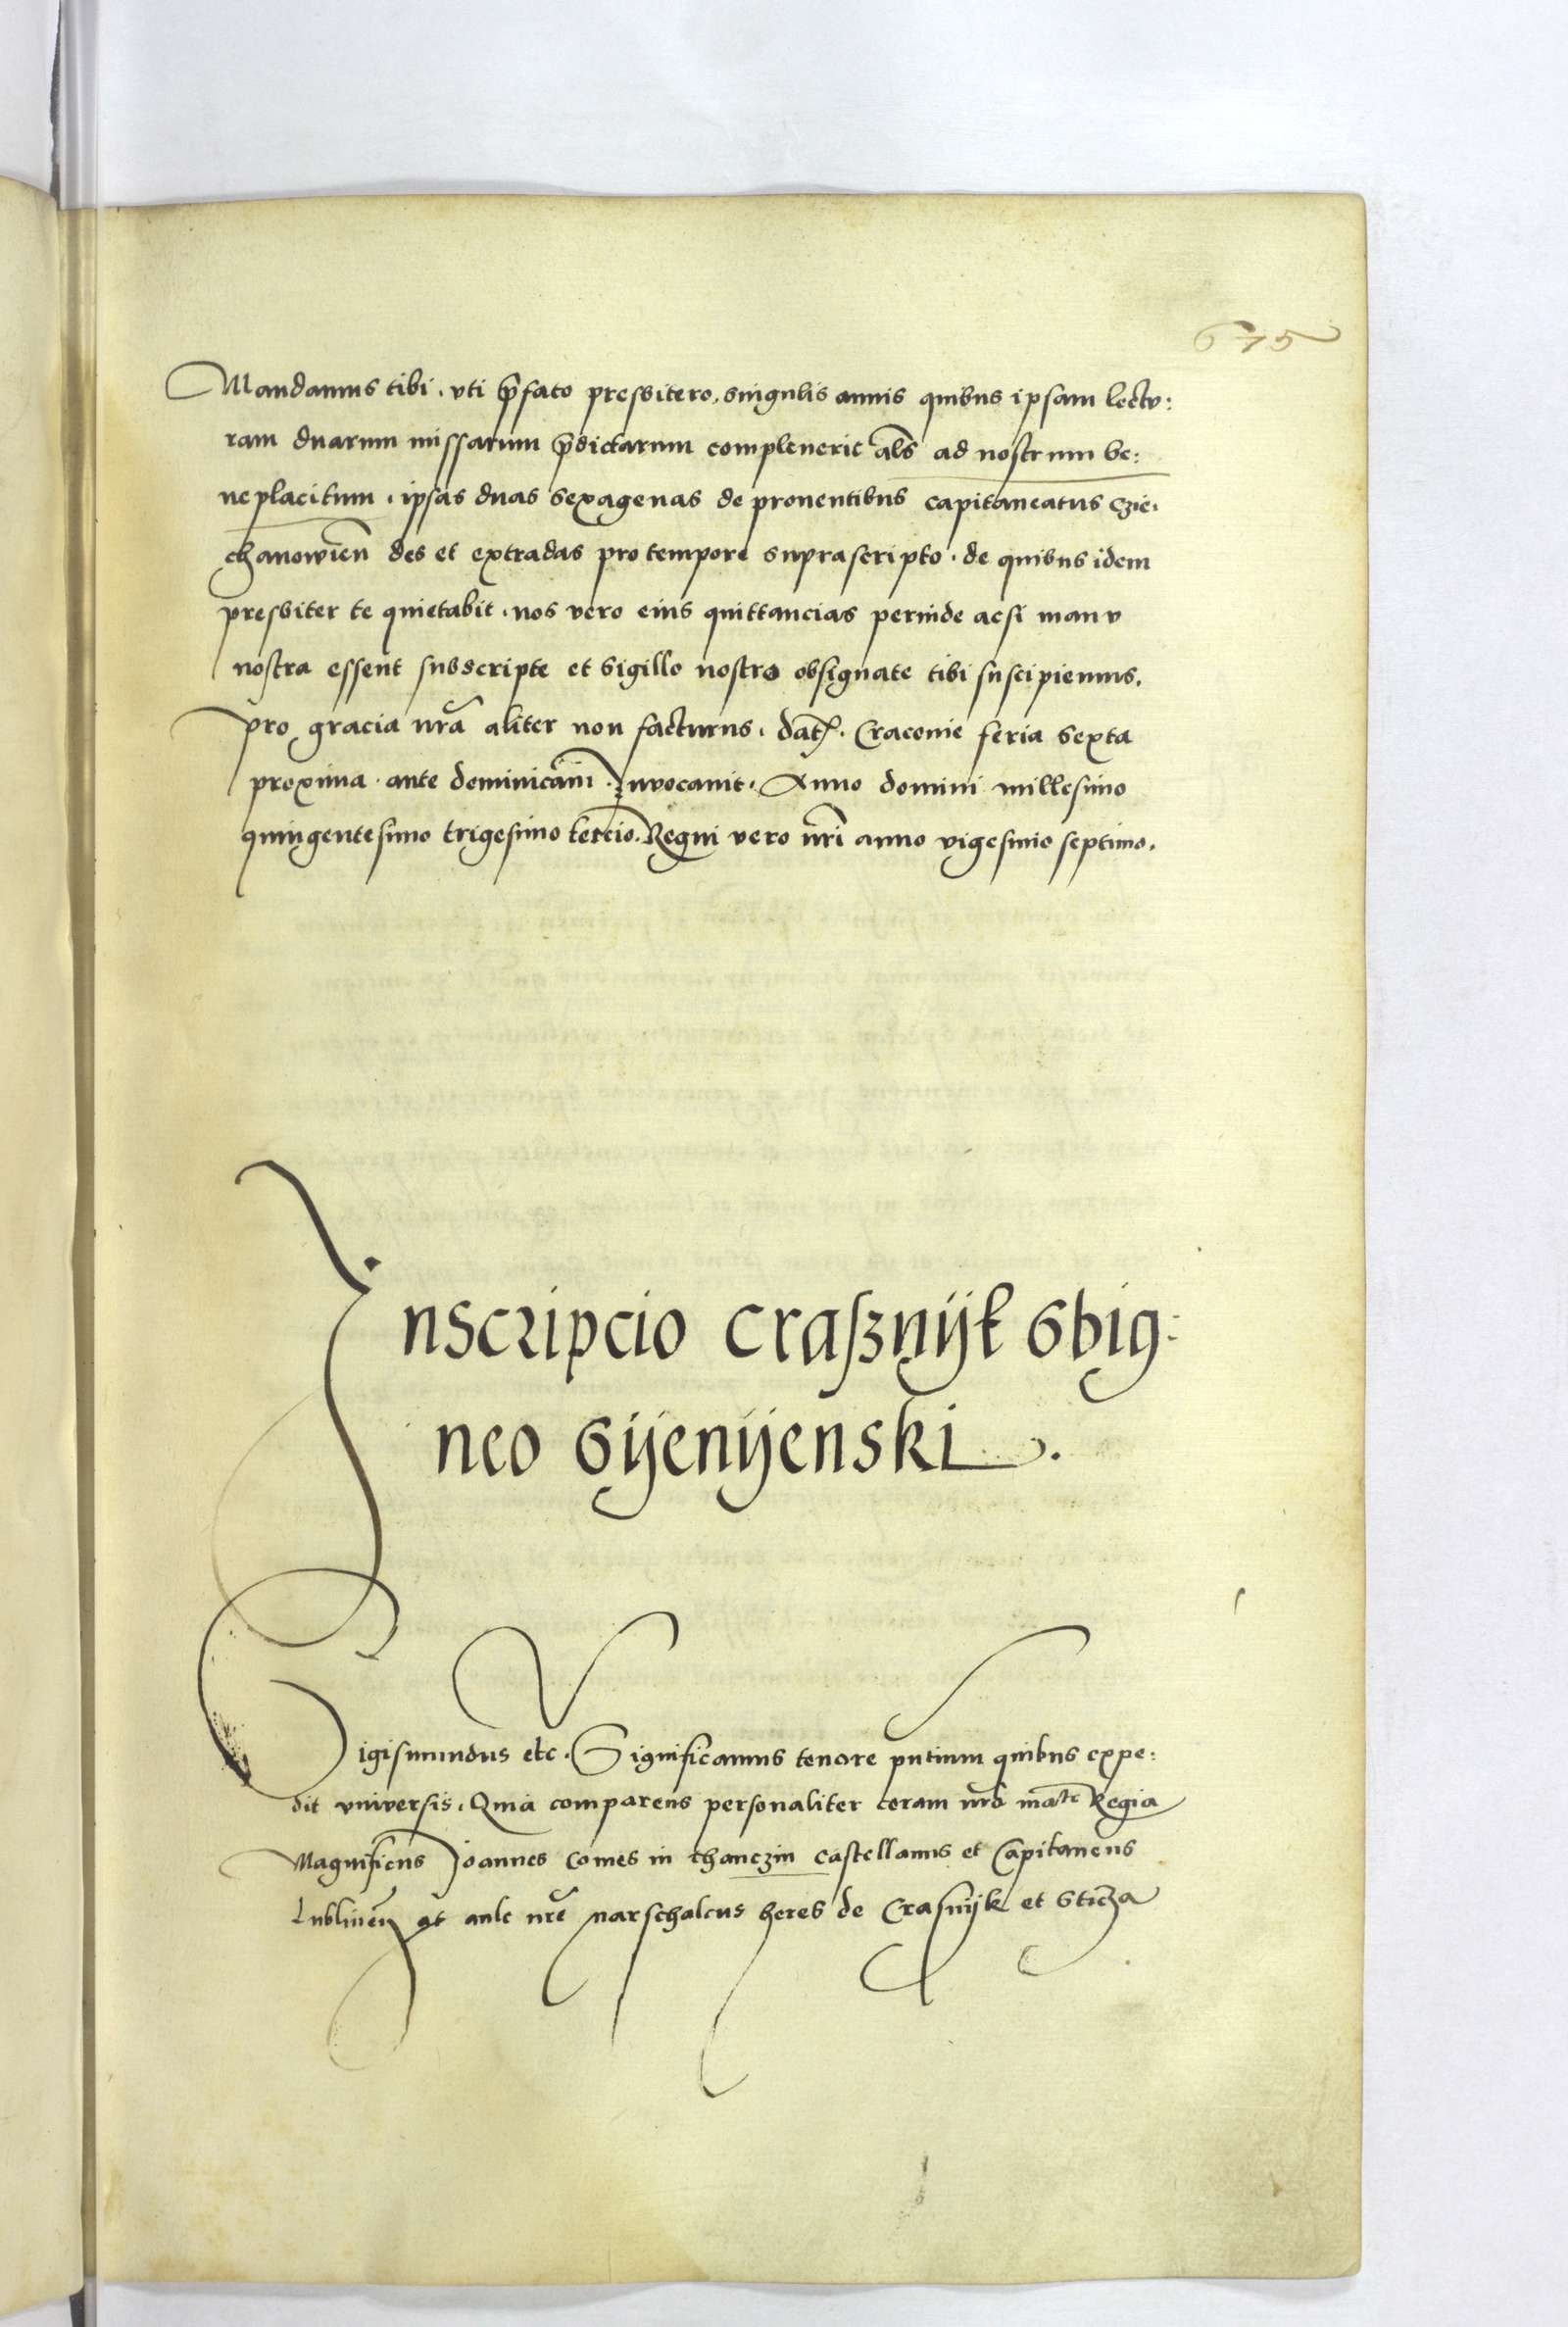 675
Mandamus tibi. vti p̄fato presbitero, singulis annis quibus ipsam lectu:
ram duarum missarum p̄dictarum compleuerit al̄s ad nostrum be:
neplacitum. ipsas duas sexagenas de prouentibus capitaneatus Czie.
chanowien̄ des et extradas pro tempore suprascripto. de quibus idem
presbiter te quietabit. nos vero eius quittancias perinde acsi manu
nostra essent subscripte et sigillo nostro obsignate tibi suscipiemus.
pro gracia nr̄a aliter non facturus. dat̄. Cracouie feria sexta
proxima. ante dominicam. Inuocauit. Anno domini millesimo
quingentesimo trigesimo tercio. Regni vero nr̄i anno vigesimo septimo.
Inscripcio craſznijk Sbig:
neo Sijenijenski.
Sigismundus etc. Significamus tenore pn̄tium quibus expe:
dit vniversis. Quia comparens personaliter coram nr̄a ma^te Regia
Magnificus Joannes Comes in thanczin castellanus et Capitaneus
Lublinen̄ et aule nr̄e marschalcus heres de Crasnijk et Sticza